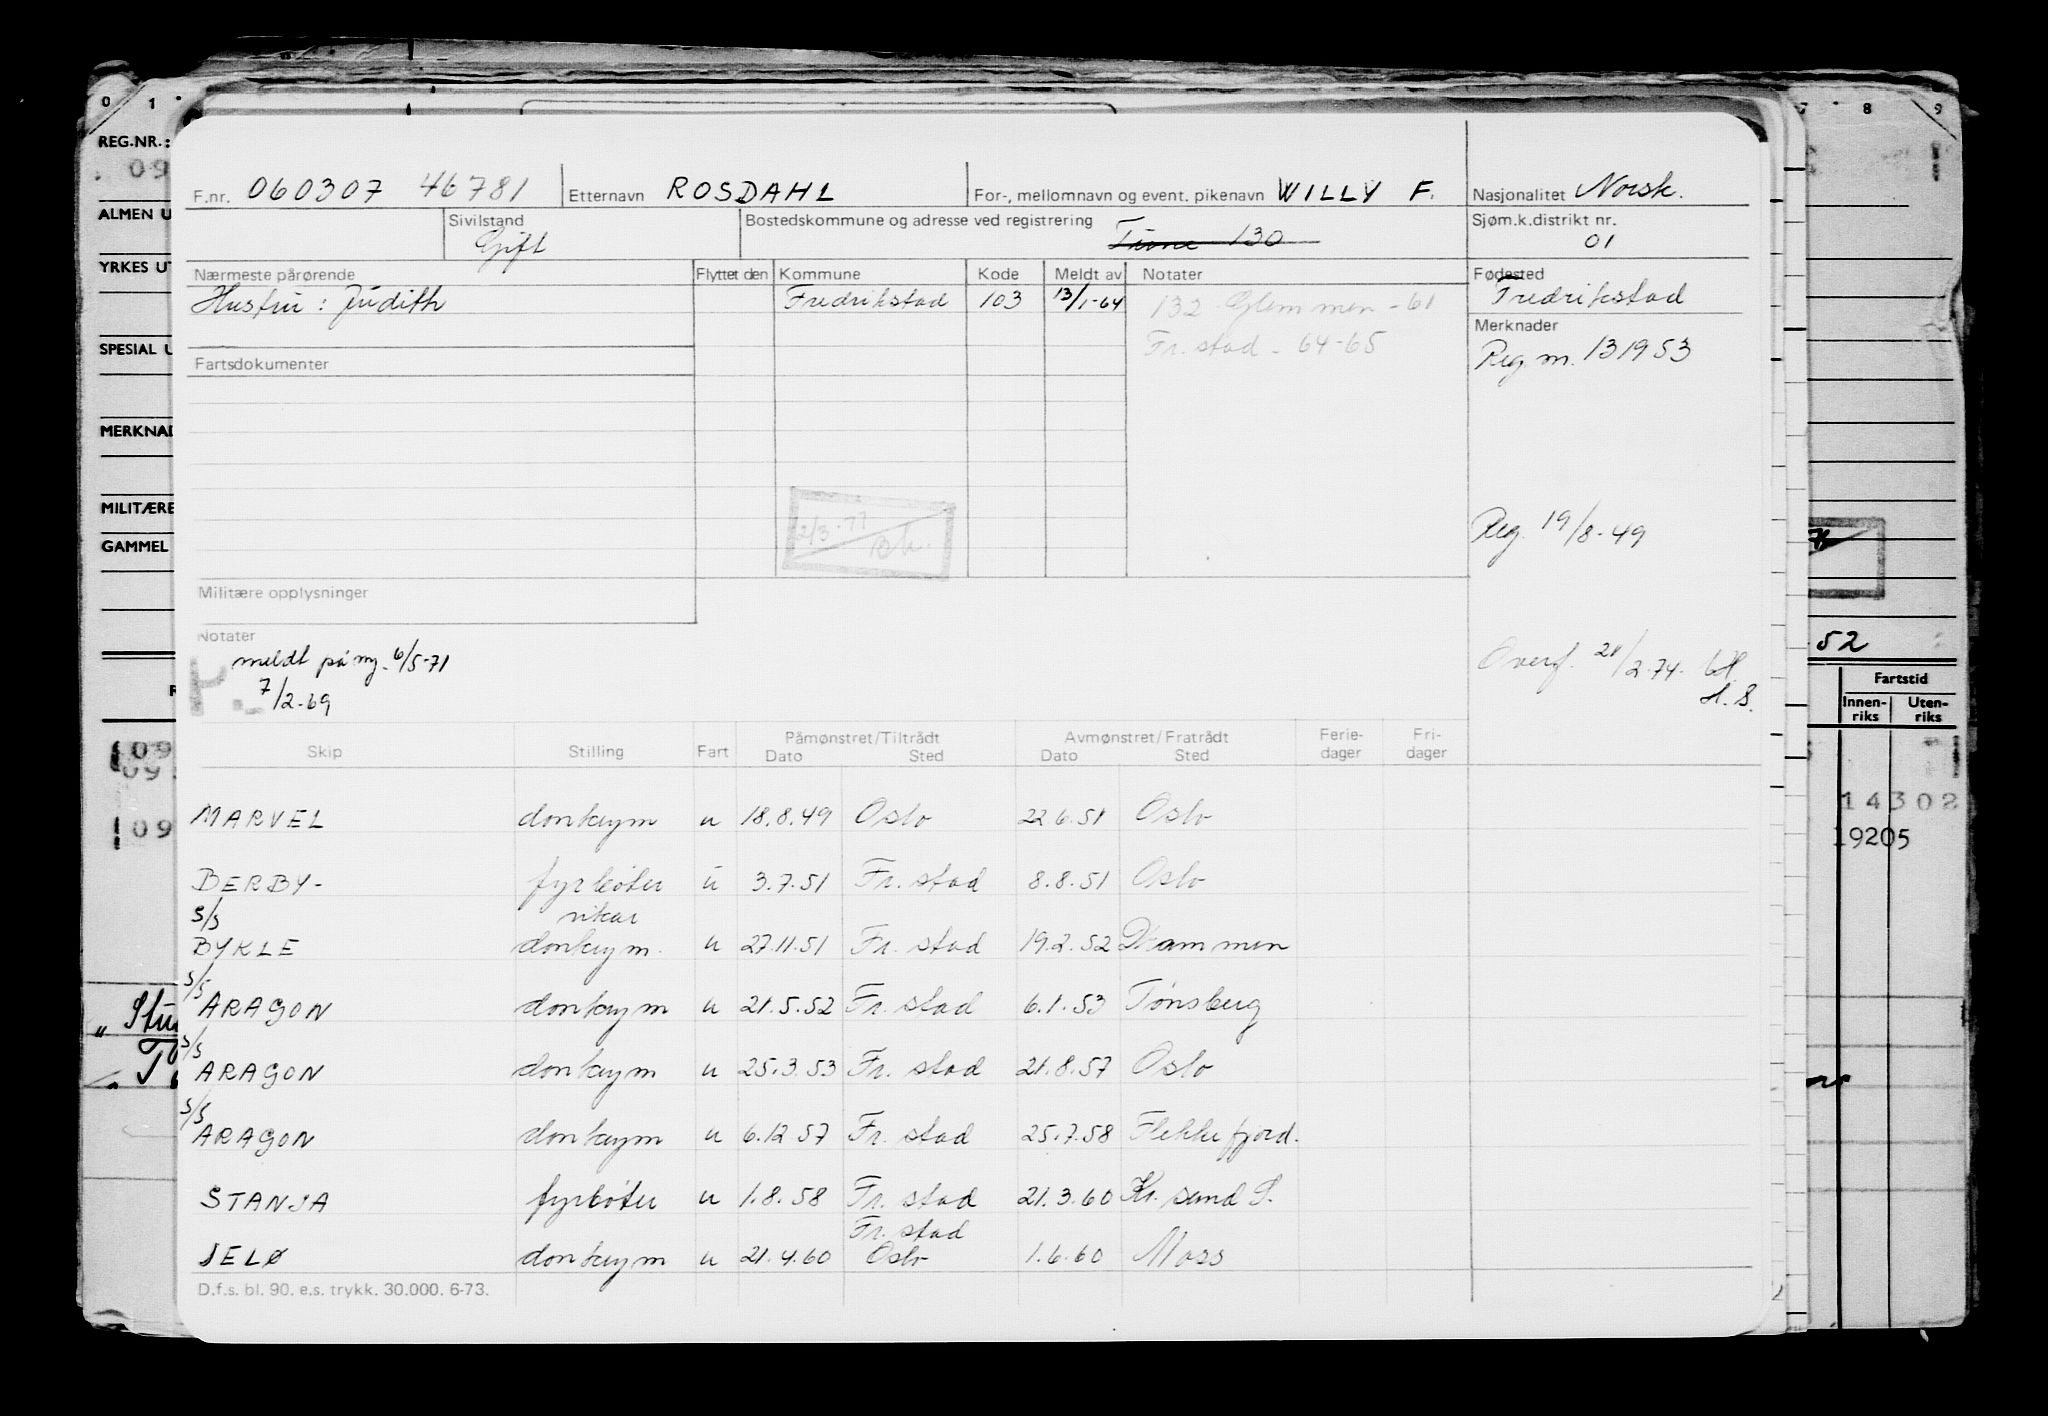 0 1 7 8 9
REG.NR.:
09
ALMEN U
YRKES UT
SPESIAL U
MERKNAD
MILITÆRE
GAMMEL
F.nr. 060307 46781 Etternavn ROSDAHL For-, mellomnavn og event. pikenavn WILLY F. Nasjonalitet Norsk.
Sivilstand Gift Bostedskommune og adresse ved registrering 130 Sjøm.k.distrikt nr. 01
Nærmeste pårørende Flyttet den Kommune Kode Meldt av Notater Fødested
Hustru: Judith Fredrikstad 103 13/1-64 132 Glemmen - 61 Fredrikstad
Fr. stad - 64-65 Merknader
Fartsdokumenter Reg m. 131953
2/3-77
Reg. 19/8-49
Militære opplysninger
Notater
meldt på ny. 6/5-71
7/2-69
Overf. 21/2-74.
H.S.
52
Fartstid
Innen-riks Uten-riks
Skip Stilling Fart Påmønstret/Tiltrådt Dato Sted Avmønstret/Fratrådt Dato Sted Ferie-dager Fri-dager
MARVEL donkeym u 18.8.49 Oslo 22.6.51 Oslo
BERBY- fyrbøter u 3.7.51 Fr. stad 8.8.51 Oslo
S/S BYKLE vikar donkeym. u 27.11.51 Fr. stad 19.2.52 Drammen
S/S ARAGON donkeym u 21.5.52 Fr. stad 6.1.53 Tønsberg
S/S ARAGON donkeym u 25.3.53 Fr. stad 21.8.57 Oslo
S/S ARAGON donkeym u 6.12.57 Fr. stad 25.7.58 Flekkefjord.
STANJA fyrbøter u 1.8.58 Fr. stad 21.3.60 Kr. sand S.
JELØ donkeym u 21.4.60 Fr. stad Oslo 1.6.60 Moss
D.f.s. bl. 90. e.s. trykk. 30.000. 6-73.
14302
19205